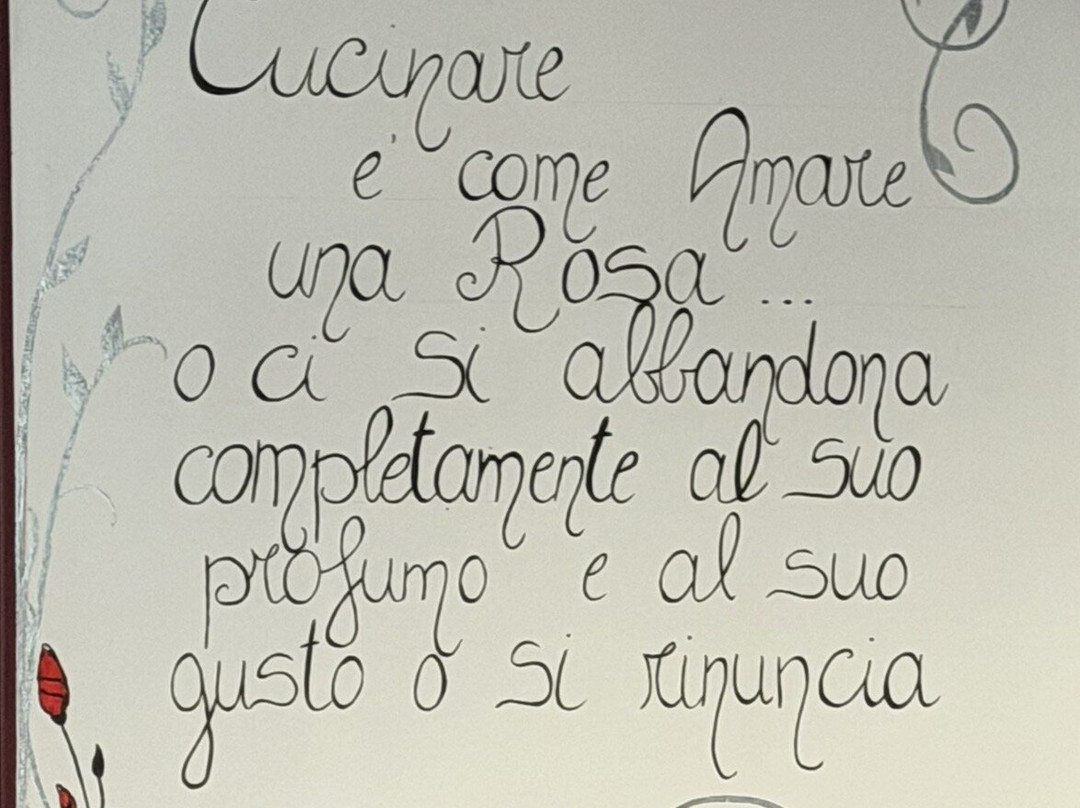 Cucinare
e' come Amare
una Rosa...
o ci si abbandona
completamente al suo
profumo e al suo
gusto o si rinuncia